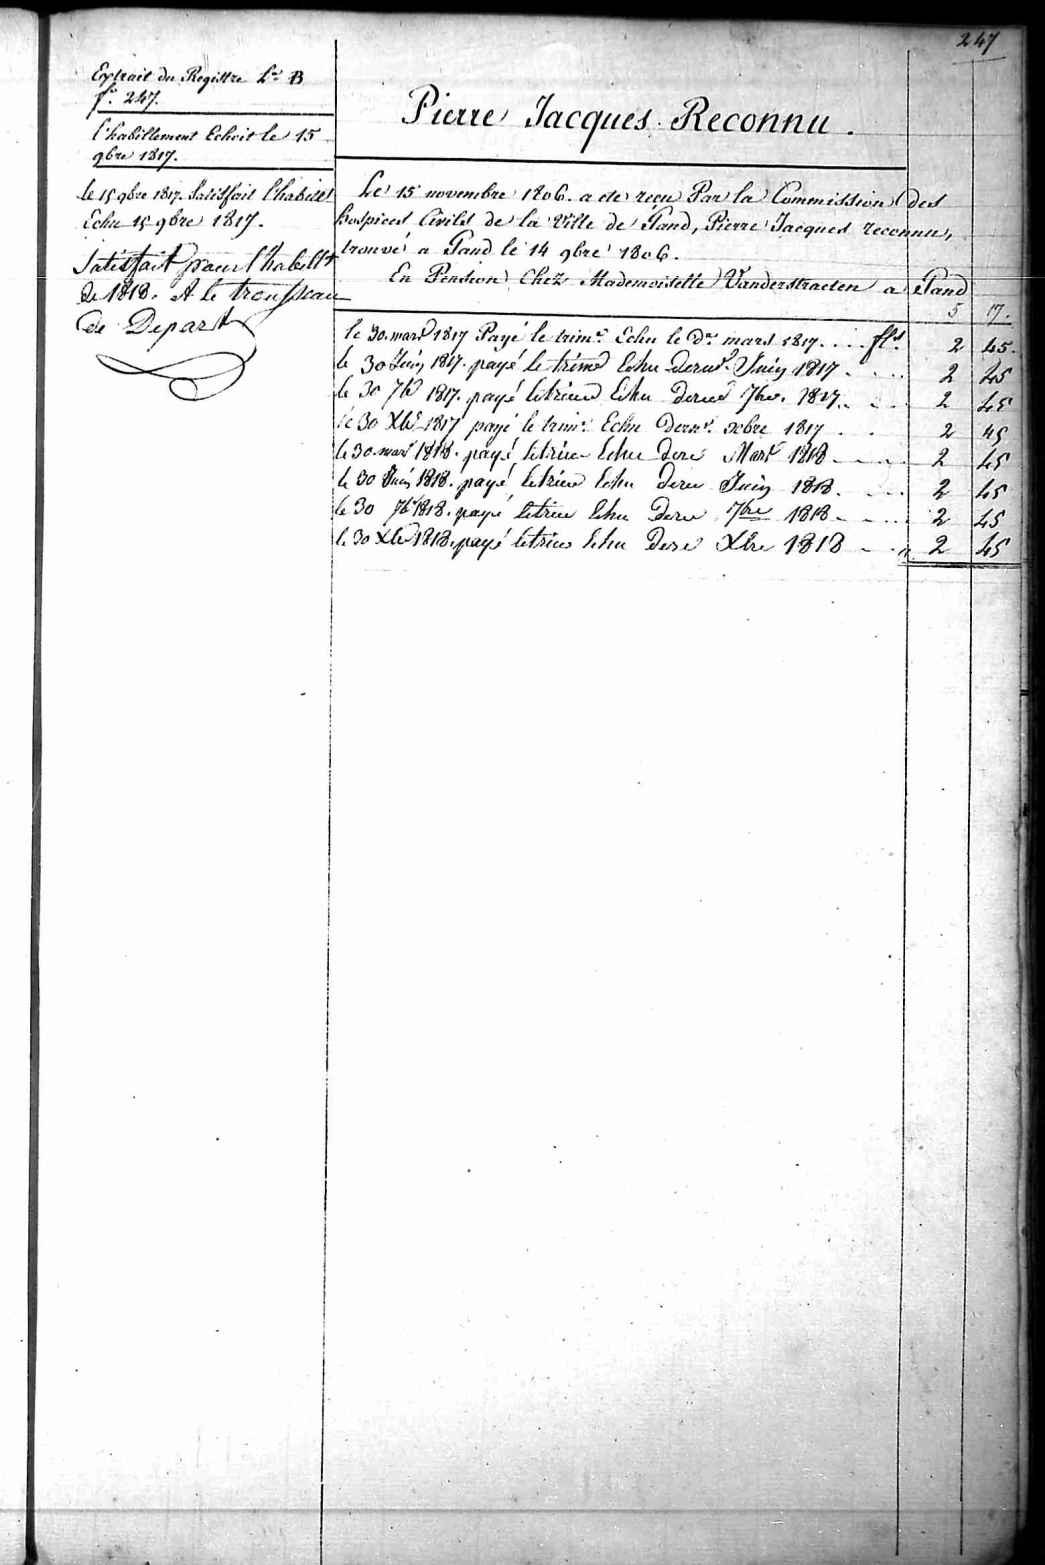 247
Extrait du Registre Lre B
fo. 247.
l'habillement Echoit le 15
9bre 1817.
le 15 9bre 1817. Satisfait l'habillt
Echu 15 9bre 1817.
Satisfait pour l'habillt
de 1818. et le trousseau
de Depart
Pierre Jacques Reconnu.
Le 15 novembre 1806. a ete reçu Par la Commission des
hospices Civils de la Ville de Gand, Pierre Jacques reconnu,
trouvé a Gand le 14 9bre 1806.
En Pension Chez Mademoiselle Vanderstraeten a Gand
5 17.
le 30. mars 1817 Payé le trime. Echu le Der mars 1817. . . . fls. 2 45.
le 30 Juin 1817. payé le trime Echu dernr. Juin 1817 . . . 2 45
le 30 7b 1817. payé le trime Echu derne 7bre. 1817. . . 2 45
le 30 Xbr 1817 payé le trimr. Echu dernr. xbre 1817 . . 2 45
le 30. mars 1818. payé le trime Echu dere Mars 1818 . . . 2 45
le 30 Juin 1818. payé le trime Echu dere Juin 1818. . . . 2 45
le 30 7br 1818. payé le trime Echu dere 7bre 1818 . . . . 2 45
le 30 Xb 1818. payé le trime Echu dere Xbre 1818 . . . " 2 45